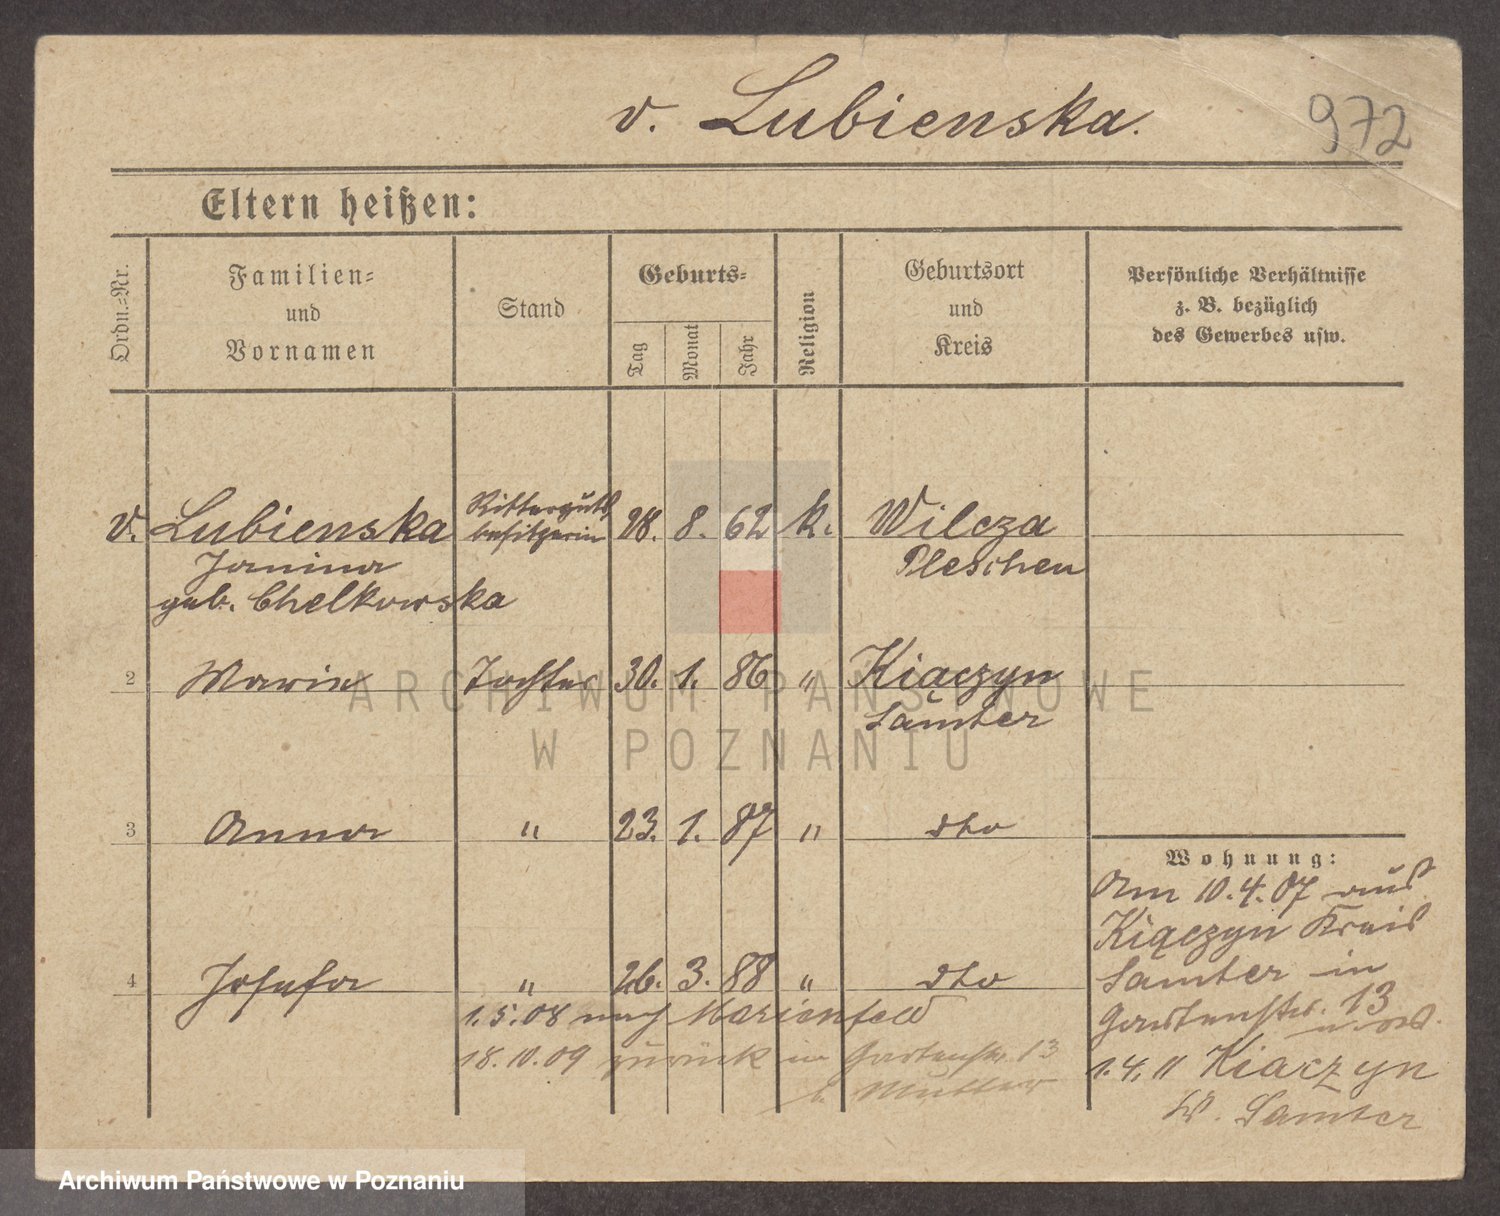 v. Lubienska.
972
Eltern heißen:
Ordn.-Nr.
Familien-
und
Vornamen
Stand
Geburts-
Tag
Monat
Jahr
Religion
Geburtsort
und
Kreis
Persönliche Verhältnisse
z. B. bezüglich
des Gewerbes usw.
v. Lubienska Ritterguts 28. 8. 62 k. Wilcza
besitzerin
Janina Pleschen
geb. Chelkowska
2 Marie Tochter 30. 1. 86 " Kiaczyn
Samter
3 Anna " 23. 1. 87 " dto
4 Josefa " 26. 3. 88 " dto
1.5.08 nach Marienfeld
18.10.09 zurück in Gartenstr. 13
b. Mutter
Wohnung:
Am 10.4.07 aus
Kiączyn Kreis
Samter in
Gartenstr. 13
1.4.11 Kiaczyn
Samter
ARCHIWUM PAŃSTWOWE
W POZNANIU
Archiwum Państwowe w Poznaniu